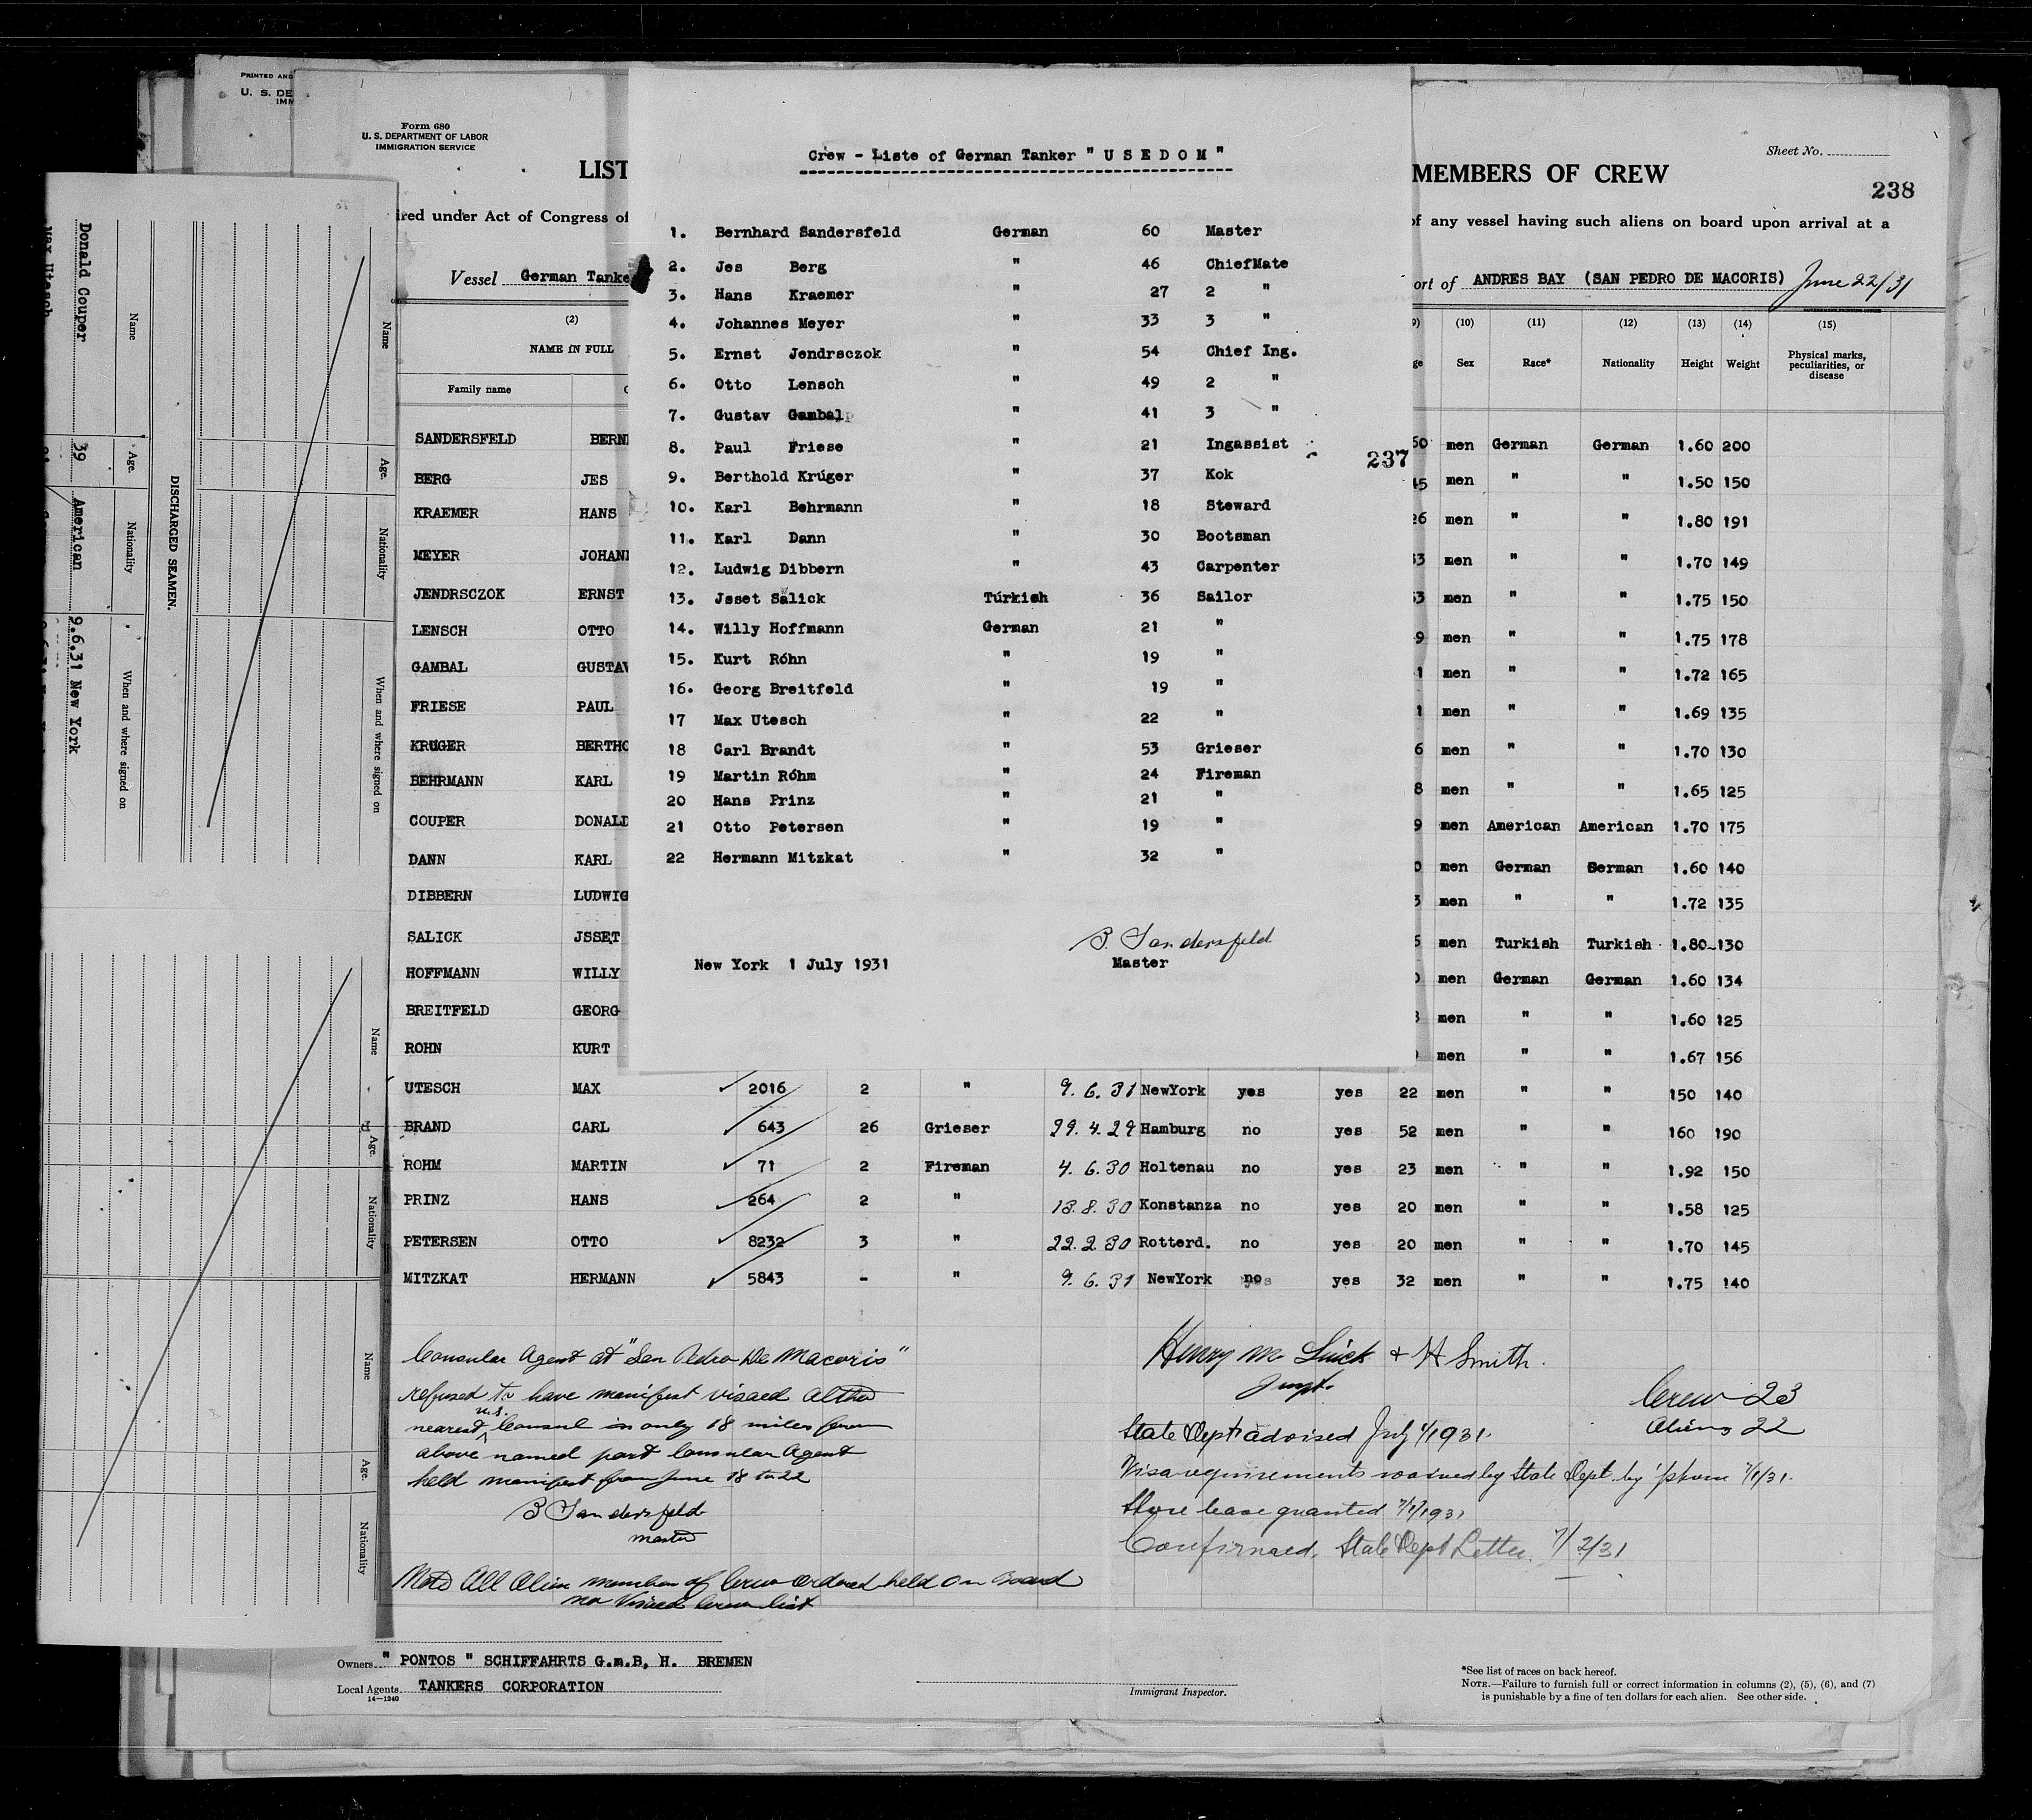 PRINTED AND
U. S. DE
IMM
Form 680
U. S. DEPARTMENT OF LABOR
IMMIGRATION SERVICE
LIST
MEMBERS OF CREW
Sheet No.
238
ired under Act of Congress of
of any vessel having such aliens on board upon arrival at a
Vessel German Tanke
ort of ANDRES BAY (SAN PEDRO DE MACORIS) June 22/31
Crew - Liste of German Tanker " U S E D O M "
1. Bernhard Sandersfeld German 60 Master
2. Jes Berg " 46 ChiefMate
3. Hans Kraemer " 27 2 "
4. Johannes Meyer " 33 3 "
5. Ernst Jendrsczok " 54 Chief Ing.
6. Otto Lensch " 49 2 "
7. Gustav Gambal " 41 3 "
8. Paul Friese " 21 Ingassist
9. Berthold Krúger " 37 Kok
10. Karl Behrmann " 18 Steward
11. Karl Dann " 30 Bootsman
12. Ludwig Dibbern " 43 Carpenter
13. Jsset Salick Túrkish 36 Sailor
14. Willy Hoffmann German 21 "
15. Kurt Róhn " 19 "
16. Georg Breitfeld " 19 "
17 Max Utesch " 22 "
18 Carl Brandt " 53 Grieser
19 Martin Róhm " 24 Fireman
20 Hans Prinz " 21 "
21 Otto Petersen " 19 "
22 Hermann Mitzkat " 32 "
B. Sandersfeld
New York 1 July 1931 Master
237
(2)
NAME IN FULL
Family name
9) (10) (11) (12) (13) (14) (15)
ge Sex Race* Nationality Height Weight Physical marks, peculiarities, or disease
SANDERSFELD BERN 60 men German German 1.60 200
BERG JES 45 men " " 1.50 150
KRAEMER HANS 26 men " " 1.80 191
MEYER JOHAN 33 men " " 1.70 149
JENDRSCZOK ERNST 53 men " " 1.75 150
LENSCH OTTO 9 men " " 1.75 178
GAMBAL GUSTAV 1 men " " 1.72 165
FRIESE PAUL 1 men " " 1.69 135
KRUGER BERTHO 6 men " " 1.70 130
BEHRMANN KARL 8 men " " 1.65 125
COUPER DONALD 9 men American American 1.70 175
DANN KARL 0 men German German 1.60 140
DIBBERN LUDWIG 3 men " " 1.72 135
SALICK JSSET 5 men Turkish Turkish 1.80 130
HOFFMANN WILLY 0 men German German 1.60 134
BREITFELD GEORG 8 men " " 1.60 125
ROHN KURT men " " 1.67 156
UTESCH MAX 2016 2 " 9. 6. 31 NewYork yes yes 22 men " " 150 140
BRAND CARL 643 26 Grieser 29. 4. 29 Hamburg no yes 52 men " " 160 190
ROHM MARTIN 71 2 Fireman 4. 6. 30 Holtenau no yes 23 men " " 1.92 150
PRINZ HANS 264 2 " 13. 8. 30 Konstanza no yes 20 men " " 1.58 125
PETERSEN OTTO 8232 3 " 22. 2. 30 Rotterd. no yes 20 men " " 1.70 145
MITZKAT HERMANN 5843 - " 9. 6. 31 NewYork no yes 32 men " " 1.75 140
Consular Agent at "San Pedro De Macoris"
refused to have manifest visaed altho
nearest U.S. Consul is only 18 miles from
above named port Consular Agent
held manifest from June 18 to 22
B Sandersfeld
master
Note All Alien members of Crew ordered held on Board
no Visaed Crew list
& H Smith.
Crew 23
Aliens 22
State Dept advised July 1/1931.
Visa requirements waived by State Dept. by 'phone 7/1/31.
Shore leave granted 7/1/1931
Confirmed. State Dept Letter. 7/2/31
Owners " PONTOS " SCHIFFAHRTS G.m.B, H. BREMEN
Local Agents TANKERS CORPORATION
14—1240
Immigrant Inspector.
*See list of races on back hereof.
NOTE.—Failure to furnish full or correct information in columns (2), (5), (6), and (7)
is punishable by a fine of ten dollars for each alien. See other side.
DISCHARGED SEAMEN.
Name Age. Nationality When and where signed on
Donald Couper 39 American 9.6.31 New York
Max Utesch
Name Age. Nationality When and where signed on
Name Age. Nationality
Name Age. Nationality